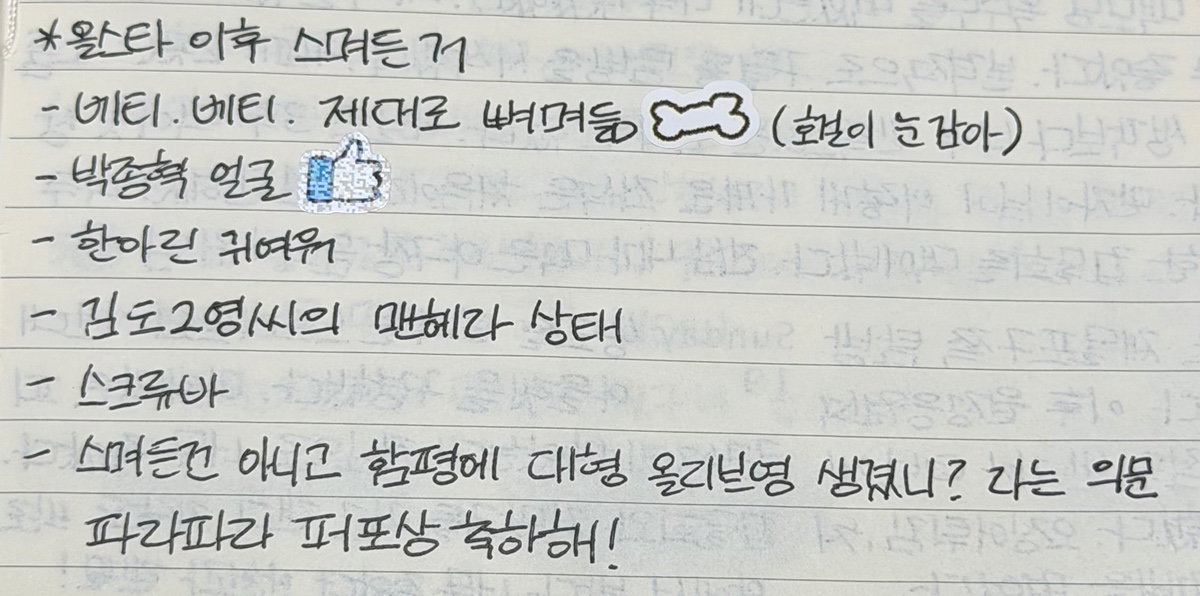 *올스타 이후 스며든 거
- 베티.베티. 제대로 뼈며듦 (호걸이 눈 감아-)
- 박종혁 얼굴
- 한아린 귀여워
- 김도2영씨의 맨헤라 상태
- 스크류바
- 스며든건 아니고 함평에 대형 올리브영 생겼니? 라는 의문
파라파라 퍼포상 축하해!